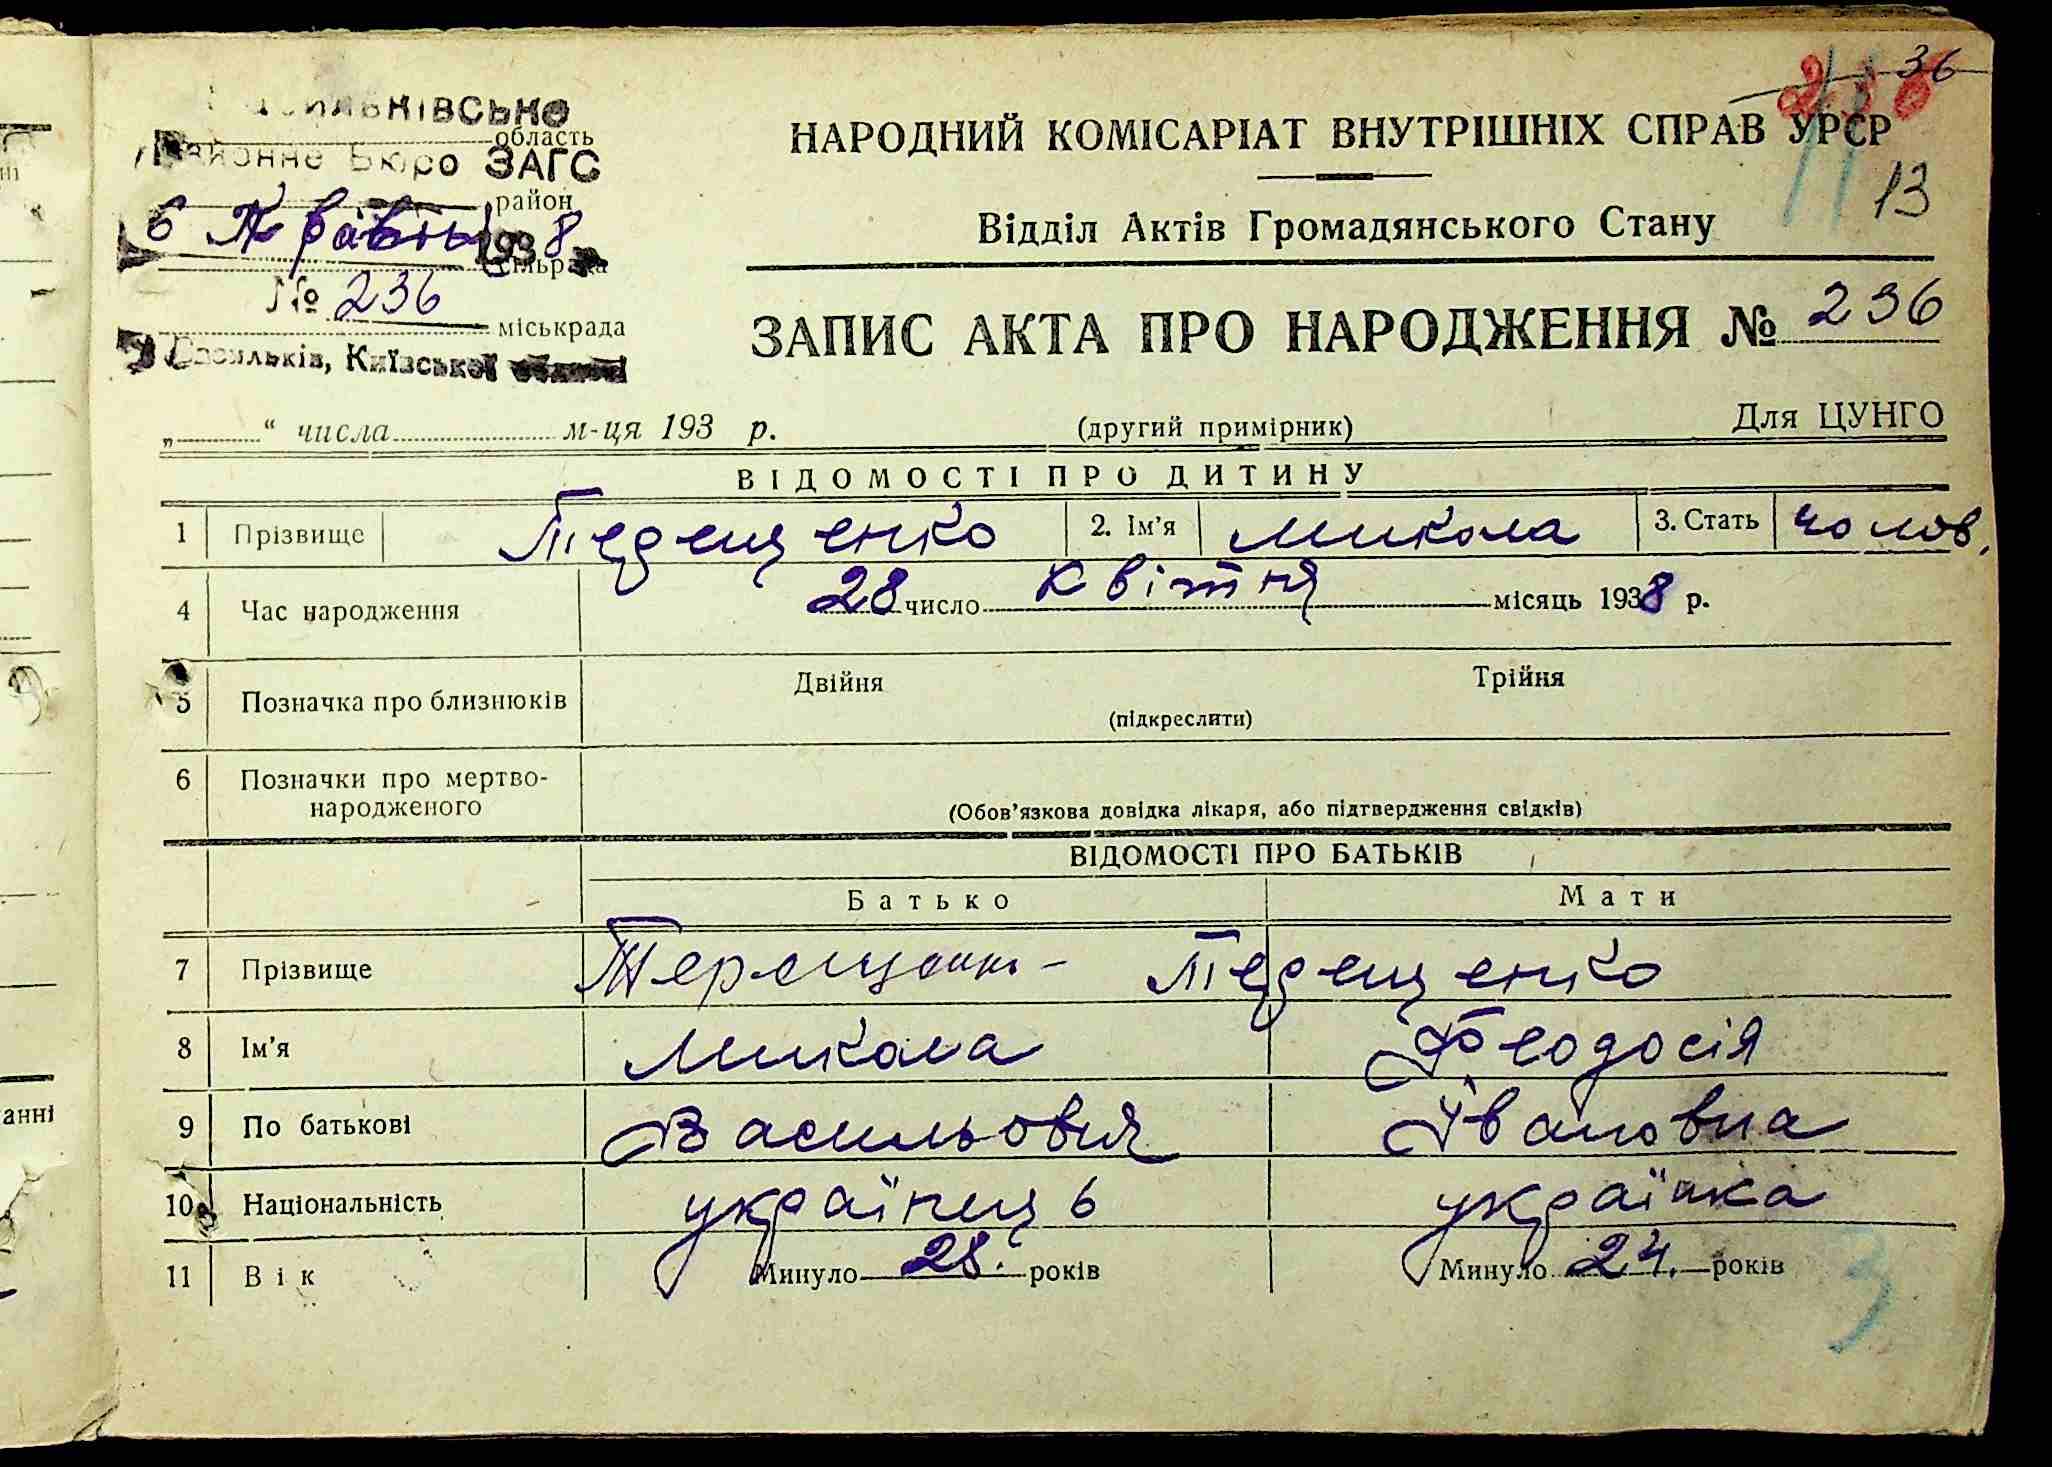 36
236
НАРОДНИЙ КОМІСАРІАТ ВНУТРІШНІХ СПРАВ УРСР
13
Відділ Актів Громадянського Стану
область
Бюро ЗАГС
район
6 Травня 1938 р
сільрада
№ 236
міськрада
Васильків, Київської області
ЗАПИС АКТА ПРО НАРОДЖЕННЯ № 236
„ “ числа м-ця 193 р. (другий примірник) Для ЦУНГО
ВІДОМОСТІ ПРО ДИТИНУ
1 Прізвище Терещенко 2. Ім’я Микола 3. Стать чолов.
4 Час народження 28 число квітня місяць 1938 р.
5 Позначка про близнюків Двійня Трійня
(підкреслити)
6 Позначки про мертво-
народженого
(Обов’язкова довідка лікаря, або підтвердження свідків)
ВІДОМОСТІ ПРО БАТЬКІВ
Батько Мати
7 Прізвище Терещенко Терещенко
8 Ім’я Микола Феодосія
9 По батькові Васильович Івановна
10 Національність українець українка
11 Вік Минуло 28. років Минуло 24. років
3
анні